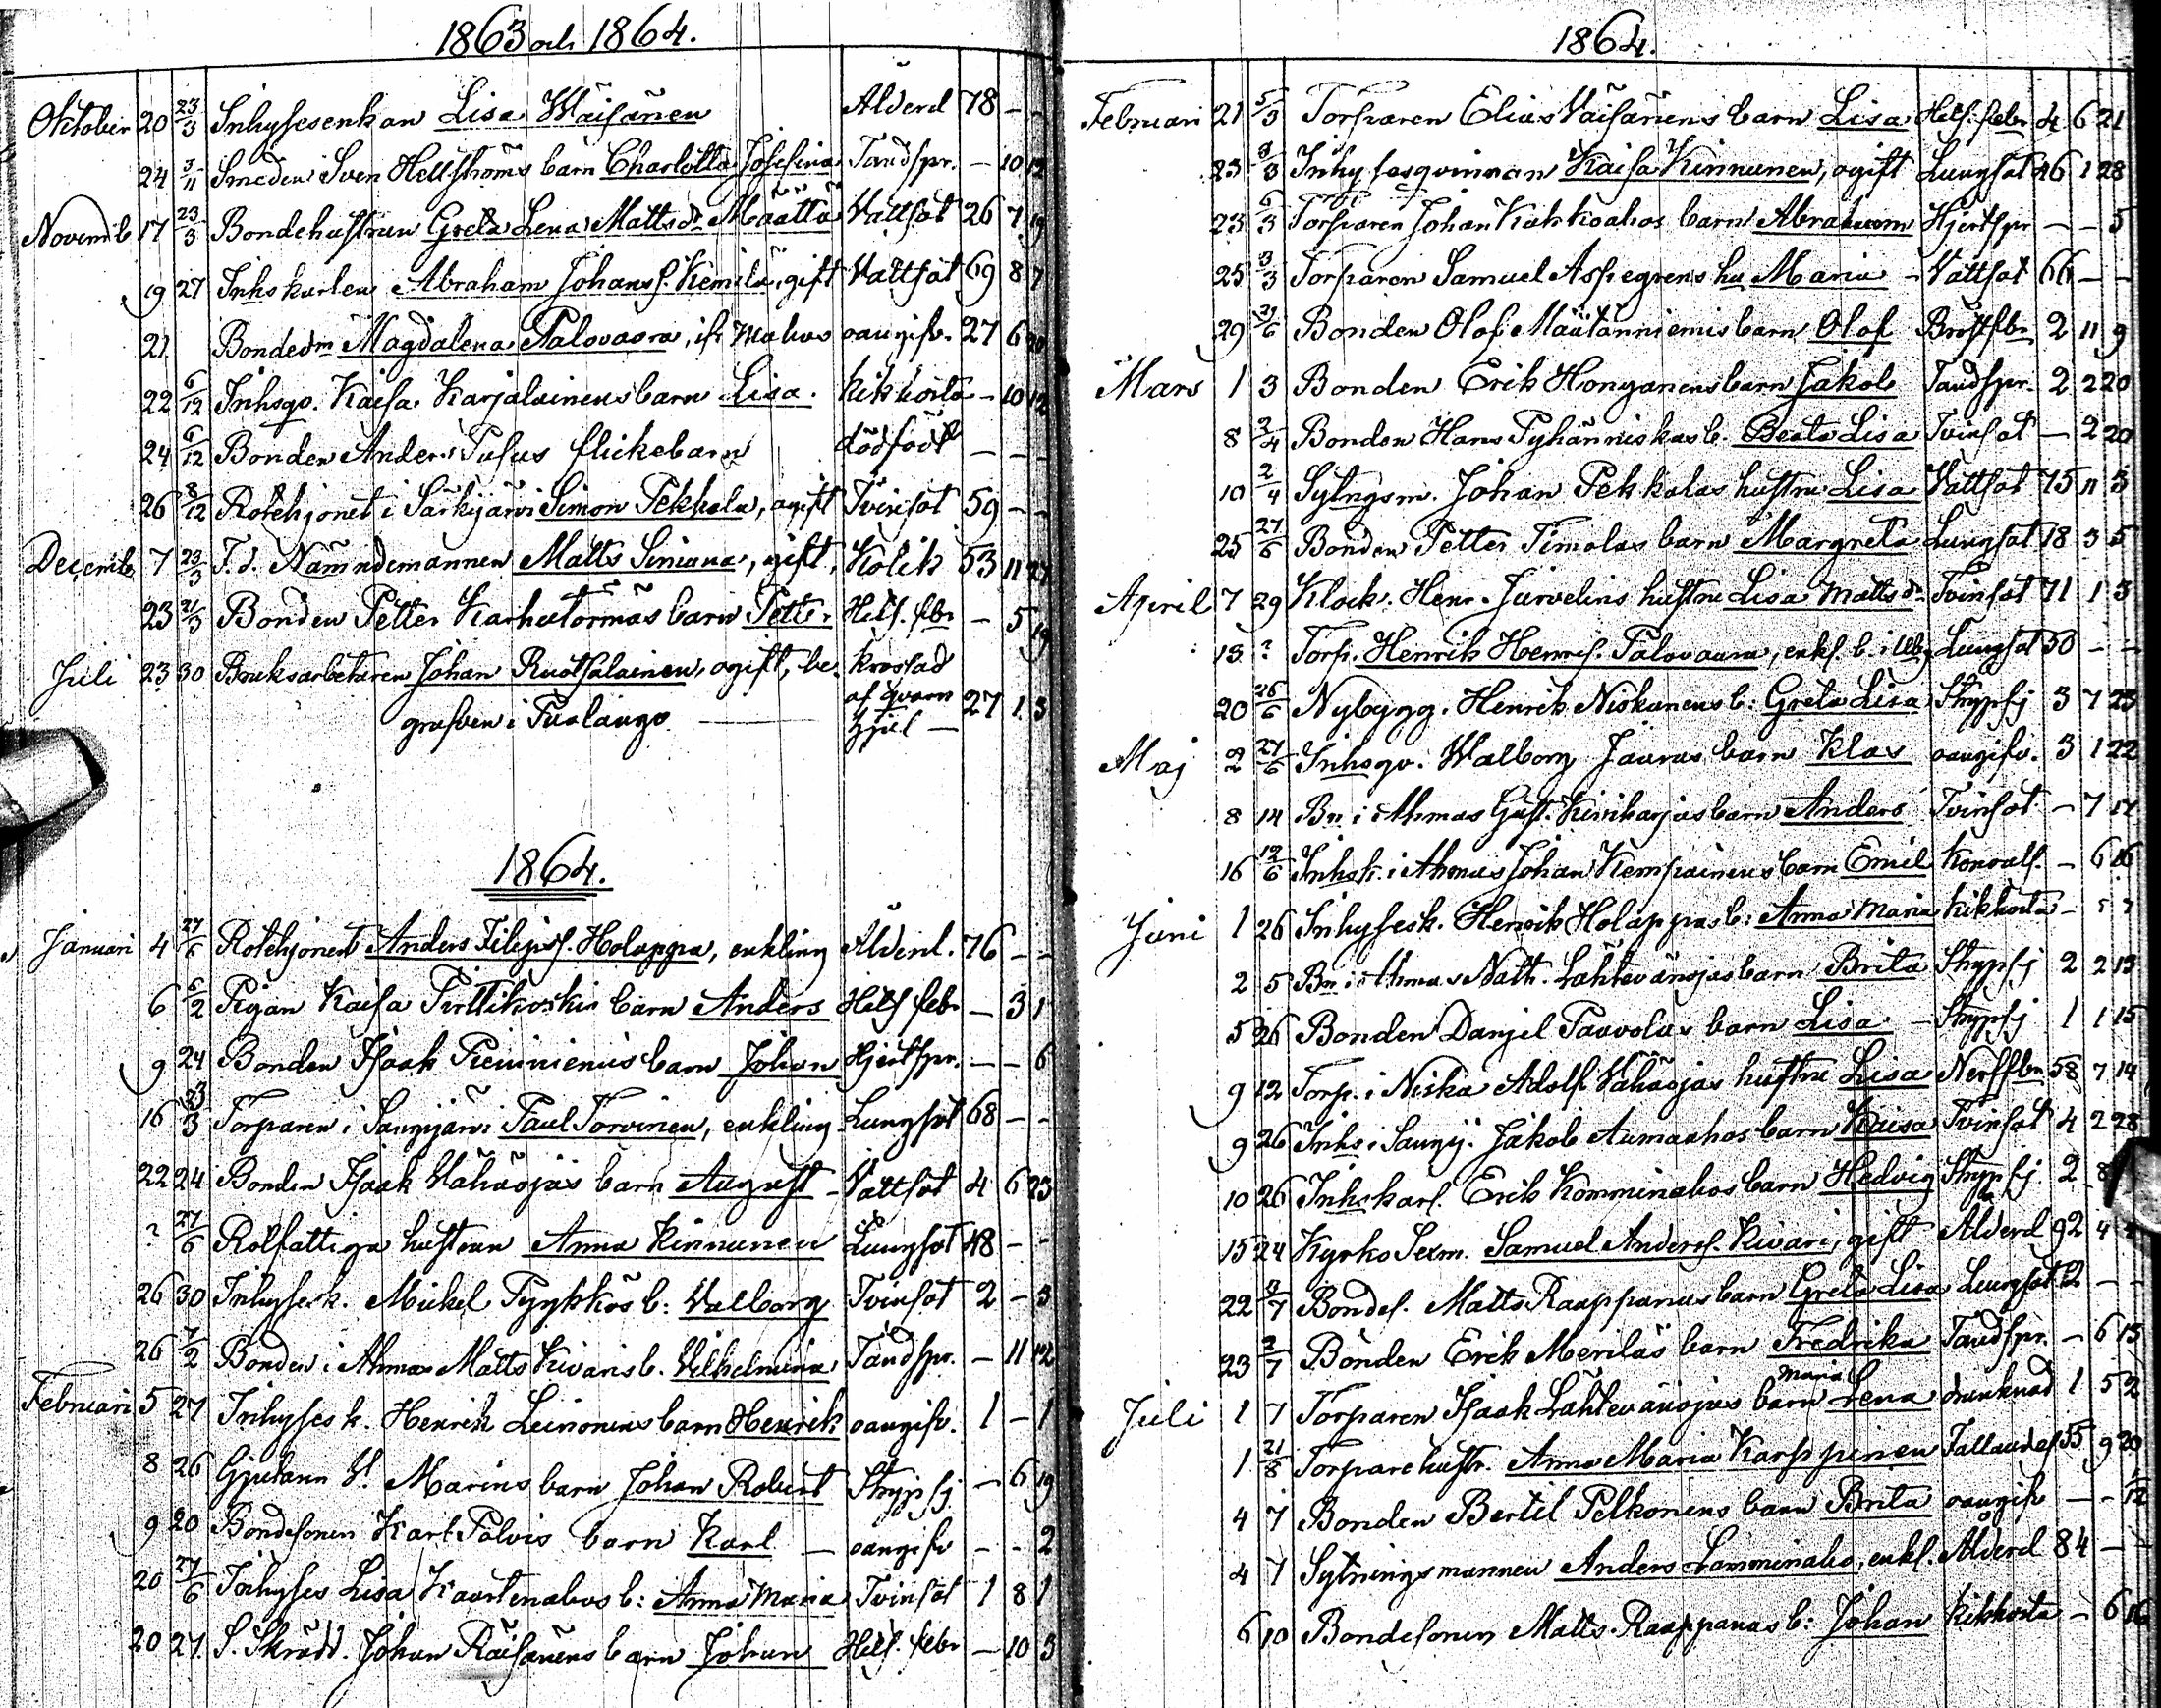 1863 och 1864.
Oktober 20 23/3 Inhysesenkan Lisa Wäisänen Ålderd 78 - -
24 3/11 Smeden Sven Hellströms barn Charlotta Josefina Tandspr. - 10 12
Novemb 17 23/3 Bondehustrun Greta Lena Mattsdr Määttä Vattsot 26 7 19
19 27 Inhskarlen Abraham Johanss. Kemilä, gift Vattsot 69 8 7
21 Bondedm Magdalena Palovaara, ifr Muhos oangifv. 27 6 20
22 6/12 Inhsqv. Kaisa Karjalainens barn Lisa. Kikhosta - 10 12
24 6/12 Bonden Anders Pusus flickebarn dödfödt - - -
26 8/12 Rotehjonet i Särkijärvi Simon Pekkala, ogift Tvinsot 59 - -
Decemb 7 23/3 F.d. Nämndemannen Matts Siniana, gift, Kolik 53 11 27
23 21/3 Bonden Petter Karhutörmäs barn Petter Hetf. fbr - 5 19
Juli 23 30 Bruksarbetaren Johan Ruotsalainen, ogift, be- krossad
grafven i Pualango af qvarn 27 1 3
hjul
1864.
Januari 4 27/6 Rotehjonet Anders Filipss. Holappa, enkling Ålderd. 76 - -
6 6/2 Pigan Kaisa Pirttikoskis barn Anders Hetsfebr - 3 1
9 24 Bonden Isaak Pieniniemis barn Johan Hjertspr. - - 6
16 23/3 Torparen i Sangijärvi Paul Torvinen, enkling Lungsot 68 - -
22 24 Bonden Isaak Vähäojas barn August - Vattsot 4 6 23
? 27/6 Rotfattiga hustrun Anna Kinnunen Lungsot 48 - -
26 30 Inhysesk. Mickel Pyykkös b: Valborg Tvinsot 2 - 3
26 7/2 Bonden i Ahmas Matts Kivaris b. Vilhelmina Tandspr. - 11 12
Februari 5 27 Inhyses k. Henrik Leinonens barn Henrik oangifv. 1 - 1
8 26 Gjutaren V. Marins barn Johan Robert Strypsj - 6 19
9 20 Bondesonen Karl Palvis barn Karl - oangifv - - 2
20 27/6 Inhyses Lisa Kaartenahos b: Anna Maria Tvinsot 1 8 1
20 27 S. Skrädd. Johan Räisänens barn Johan Hetf. febr - 10 3
1864.
Februari 21 5/3 Torparen Elias Väisänens barn Lisa Hetf. febr 4 6 21
23 8/3 Inhysesqvinnan Kaisa Kinnunen, ogift Lungsot 46 1 28
23 6/3 Torparen Johan Kukkoahos barn Abraham Hjertspr - - 5
25 3/3 Torparen Samuel Aspegrens hu Maria - Vattsot 66 - -
29 21/6 Bonden Olof Määtänniemis barn Olof Bröstfbr 2 11 9
Mars 1 3 Bonden Erik Honganens barn Jakob Tandspr. 2 2 20
8 2/4 Bonden Hans Pyhänniskas b. Beata Lisa Tvinsot - 2 20
10 2/4 Sytngsm. Johan Pekkalas hustru Lisa Vattsot 75 11 3
25 27/6 Bonden Petter Timolas barn Margreta Lungsot 18 3 5
April 7 29 Klock. Henr. Jurvelins hustru Lisa Mattsdr Tvinsot 71 1 3
13 ? Torp. Henrik Henriks. Palovaara, enkl. b. i Ulbg Lungsot 50 - -
20 26/6 Nybygg. Henrik Niskanens b: Greta Lisa Strypsj 3 7 23
Maj 2 27/6 Inhsqv. Walborg Jaurus barn Klas oangifv. 3 1 22
8 14 Bn i Ahmas Gust. Kiviharjus barn Anders Tvinsot - 7 17
16 19/6 Inhsk. i Ahmas Johan Kempainens barn Emil Konvuls. - 6 16
Juni 1 26 Inhysesk. Henrik Holappas b: Anna Maria Kikhosta -
2 5 Bn i Ahmas Nath. Lähtevänojas barn Brita Strypsj 2 2 13
5 26 Bonden Danjel Paavolas barn Lisa - Strypsj 1 1 15
9 12 Torp. i Niska Adolf Vähäojas hustru Lisa Nerffbr 58 7 14
9 26 Inhs i Sangij. Jakob Aumaahos barn Kaisa Tvinsot 4 2 28
10 26 Inhskarl. Erik Komminahos barn Hedvig Strypsj 2 8
15 24 Kyrko Sexm. Samuel Anderss. Kivari, gift Ålderd 92 4
22 3/7 Bondes. Matts Raappanas barn Greta Lisa Lungsot 2 - -
23 2/7 Bonden Erik Meriläs barn Fredrika Tandspr. - 6 13
Juli 1 7 Torparen Isaak Lähtevänojas barn Maria Lena drunknad 1 5 2
1 21/8 Torparehustr. Anna Maria Karppinen Fallandes. 55 9 20
4 7 Bonden Bertil Pelkonens barn Brita oangifv - - 12
4 7 Sytningsmannen Anders Lamminaho, enkl. Ålderd 84 - -
6 10 Bondesonen Matts Raappanas b: Johan Kikhosta - 6 16